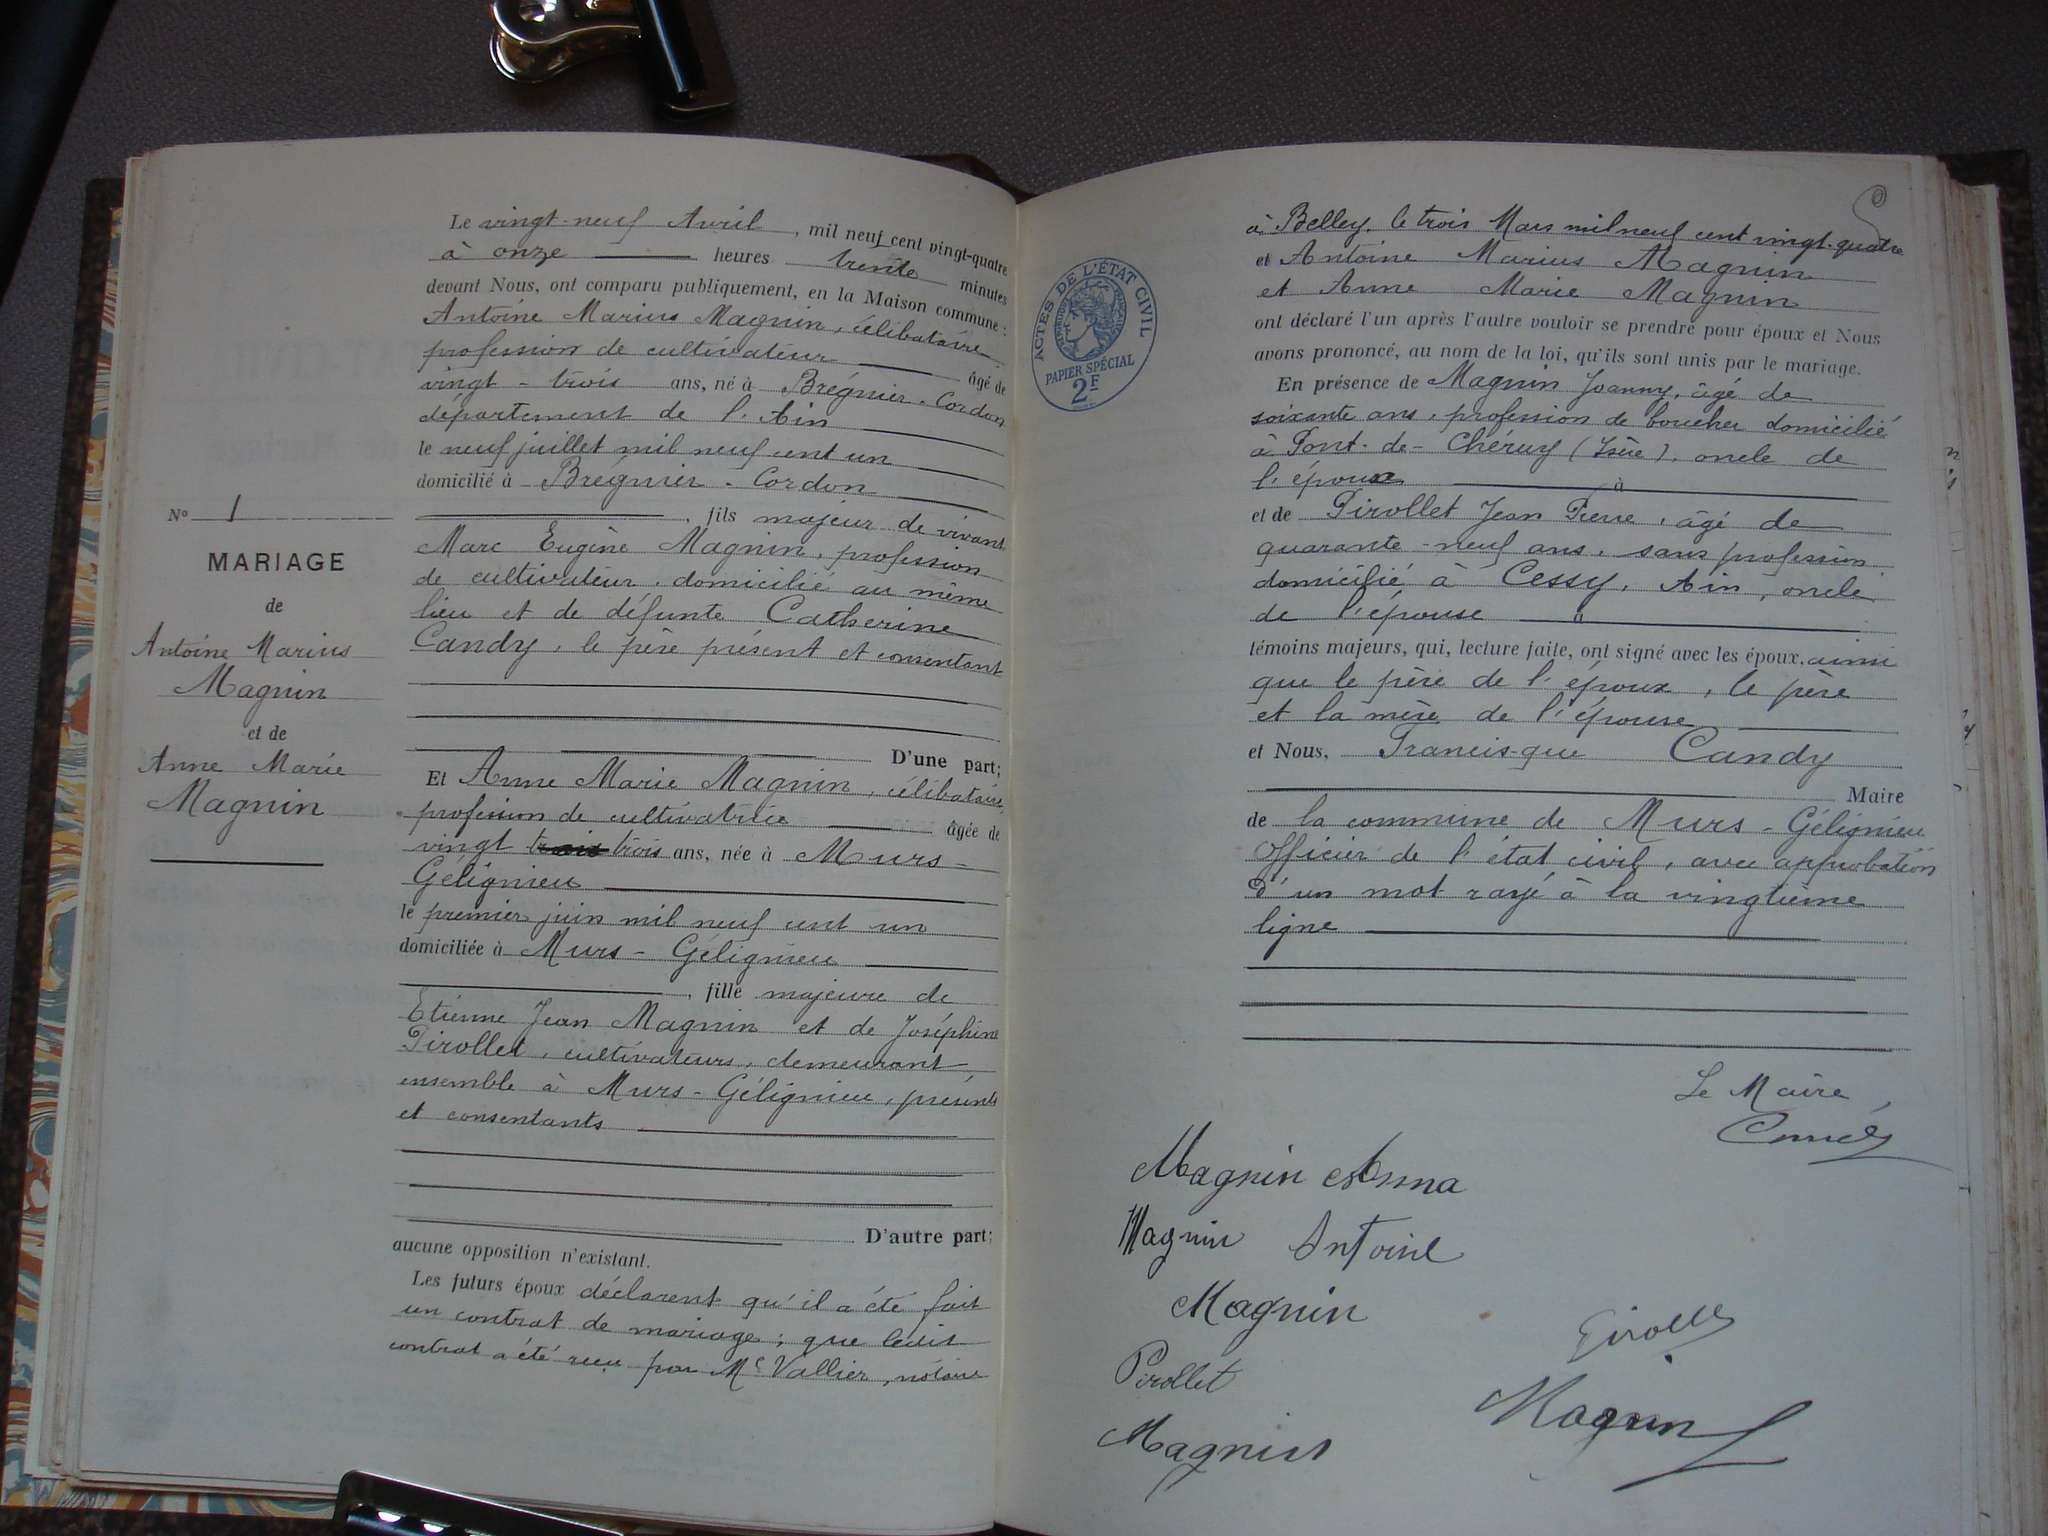 N° 1
MARIAGE
de
Antoine Marius
Magnin
et de
Anne Marie
Magnin
Le vingt-neuf Avril, mil neuf cent vingt-quatre
à onze heures trente minutes
devant Nous, ont comparu publiquement, en la Maison commune :
Antoine Marius Magnin, célibataire
profession de cultivateur âgé de
vingt-trois ans, né à Brégnier-Cordon
département de l'Ain
le neuf juillet mil neuf cent un
domicilié à Brégnier-Cordon
, fils majeur de vivant
Marc Eugène Magnin, profession
de cultivateur, domicilié au même
lieu et de défunte Catherine
Candy, le père présent et consentant
D'une part;
Et Anne Marie Magnin, célibataire
profession de cultivatrice âgée de
vingt trois ans, née à Murs-
Gélignieu
le premier juin mil neuf cent un
domiciliée à Murs-Gélignieu
, fille majeure de
Etienne Jean Magnin et de Joséphine
Pirollet, cultivateurs, demeurant
ensemble à Murs-Gélignieu, présents
et consentants
D'autre part;
aucune opposition n'existant.
Les futurs époux déclarent qu'il a été fait
un contrat de mariage ; que ledit
contrat a été reçu par Me Vallier, notaire
à Belley, le trois Mars mil neuf cent vingt-quatre
et Antoine Marius Magnin
et Anne Marie Magnin
ont déclaré l'un après l'autre vouloir se prendre pour époux et Nous
avons prononcé, au nom de la loi, qu'ils sont unis par le mariage.
En présence de Magnin Joanny, âgé de
soixante ans, profession de boucher domicilié
à Pont-de-Chéruy (Isère), oncle de
l'époux
et de Pirollet Jean Pierre, âgé de
quarante-neuf ans, sans profession
domicilié à Cessy, Ain, oncle
de l'épouse
témoins majeurs, qui, lecture faite, ont signé avec les époux, ainsi
que le père de l'époux, le père
et la mère de l'épouse
et Nous, Francisque Candy
Maire
de la commune de Murs-Gélignieu
Officier de l'état civil, avec approbation
d'un mot rayé à la vingtième
ligne
ACTES DE L'ÉTAT CIVIL
PAPIER SPÉCIAL
2F
Le Maire,
Magnin Anna
Magnin Antoine
Magnin
Pirollet
Magnin
Magnin